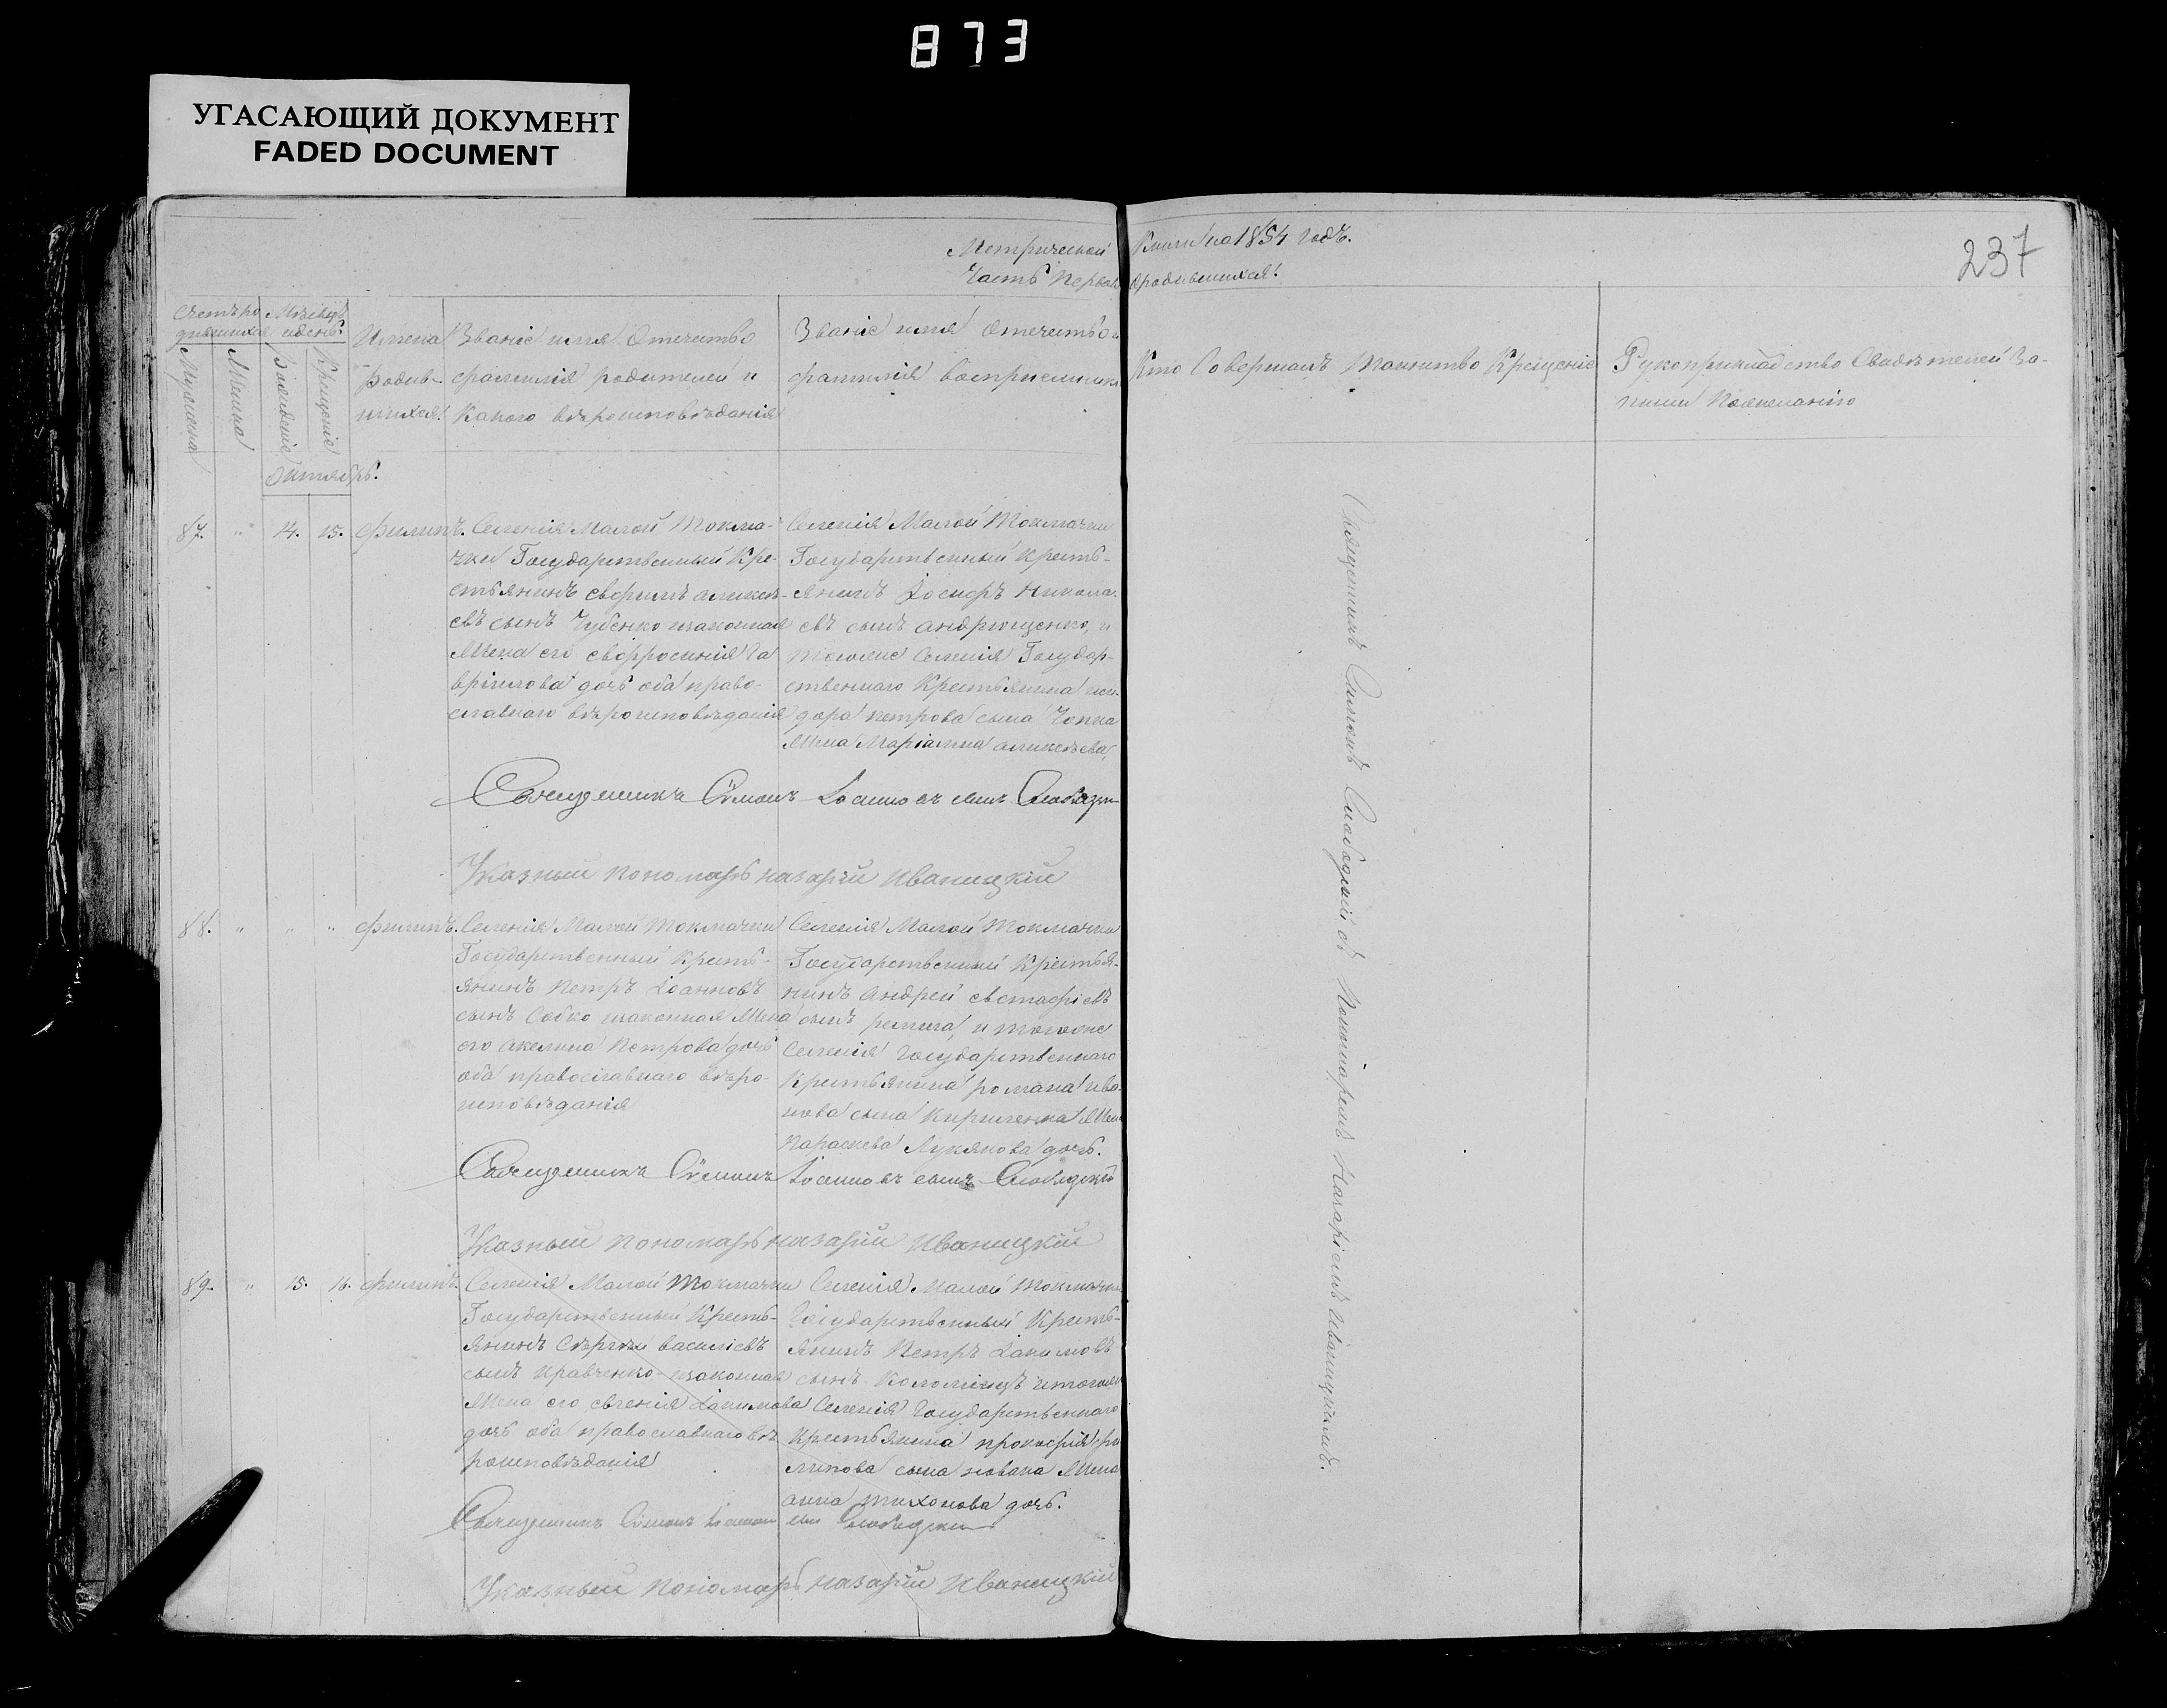 873
УГАСАЮЩИЙ ДОКУМЕНТ
FADED DOCUMENT
237
Метрической Книги на 1854 годъ.
Часть Первая о родившихся.
Счетъ ро- Мѣсяцъ
дившихся и день.
Мужеска
Женска
Рожденіе
Крещеніе
Имена
Родив-
шихся.
Званіе имя Отечитво
фамилія родителей и
Какого вѣроисповѣданія
Званіе имя Отечитво и
фамилія воспріемник
Кто Совершалъ Таинство Крещеніе
Рукоприкладство Свидѣтелей За-
писи По желанію
Октябрь.
87. " 14. 15. Филипъ.
Селенія Малой Токма-
чки Государственный Кре-
стьянинъ евфимъ алексѣ-
евъ сынъ Чубенко изаконная
Жена его евфросинія Га
вріилова дочь оба право-
славнаго вѣроисповѣданія
Селенія Малой Токмачки
Государственный Кресть-
янинъ Іосифъ Никола-
евъ сынъ андрющенко, и
тогоже Селенія Государ-
ственнаго Крестьянина иси-
дора петрова сына
Жена Маріанна алексѣева,
Священникъ Симонъ Іоанновъ сынъ
Указный пономарь назарій Иваницкій
88. " " " Филипъ.
Селенія Малой Токмачки
Государственный Кресть-
янинъ Петръ Іоанновъ
сынъ Собко изаконная Жена
его акелина Петрова дочь
оба православнаго вѣро-
исповѣданія
Селенія Малой Токмачки
Государственный Крестья-
нинъ андрей евстафіевъ
сынъ и тогоже
Селенія Государственнаго
Крестьянина романа ива-
нова сына Кириченка Жен
Параскева Лукянова дочь.
Священникъ Симонъ Іоанновъ сынъ
Указный пономарь назарій Иваницкій
89. " 15. 16. Филипъ.
Селенія Малой Токмачки
Государственный Кресть-
янинъ Сергѣй василіевъ
сынъ Кравченко изаконная
Жена его евгенія Іакимова
дочь оба православнаго вѣ
роисповѣданія
Селенія Малой Токмачки
Государственный Кресть-
янинъ Петръ Іакимовъ
сынъ Коломіецъ и тогоже
Селенія Государственнаго
Крестьянина прокофія фи
липова сына Жена
анна тихонова дочь.
Священникъ Симонъ
Указный пономарь назарій Иваницкій
Священникъ Симонъ съ Пономаремъ Назаріемъ Иваницкимъ.